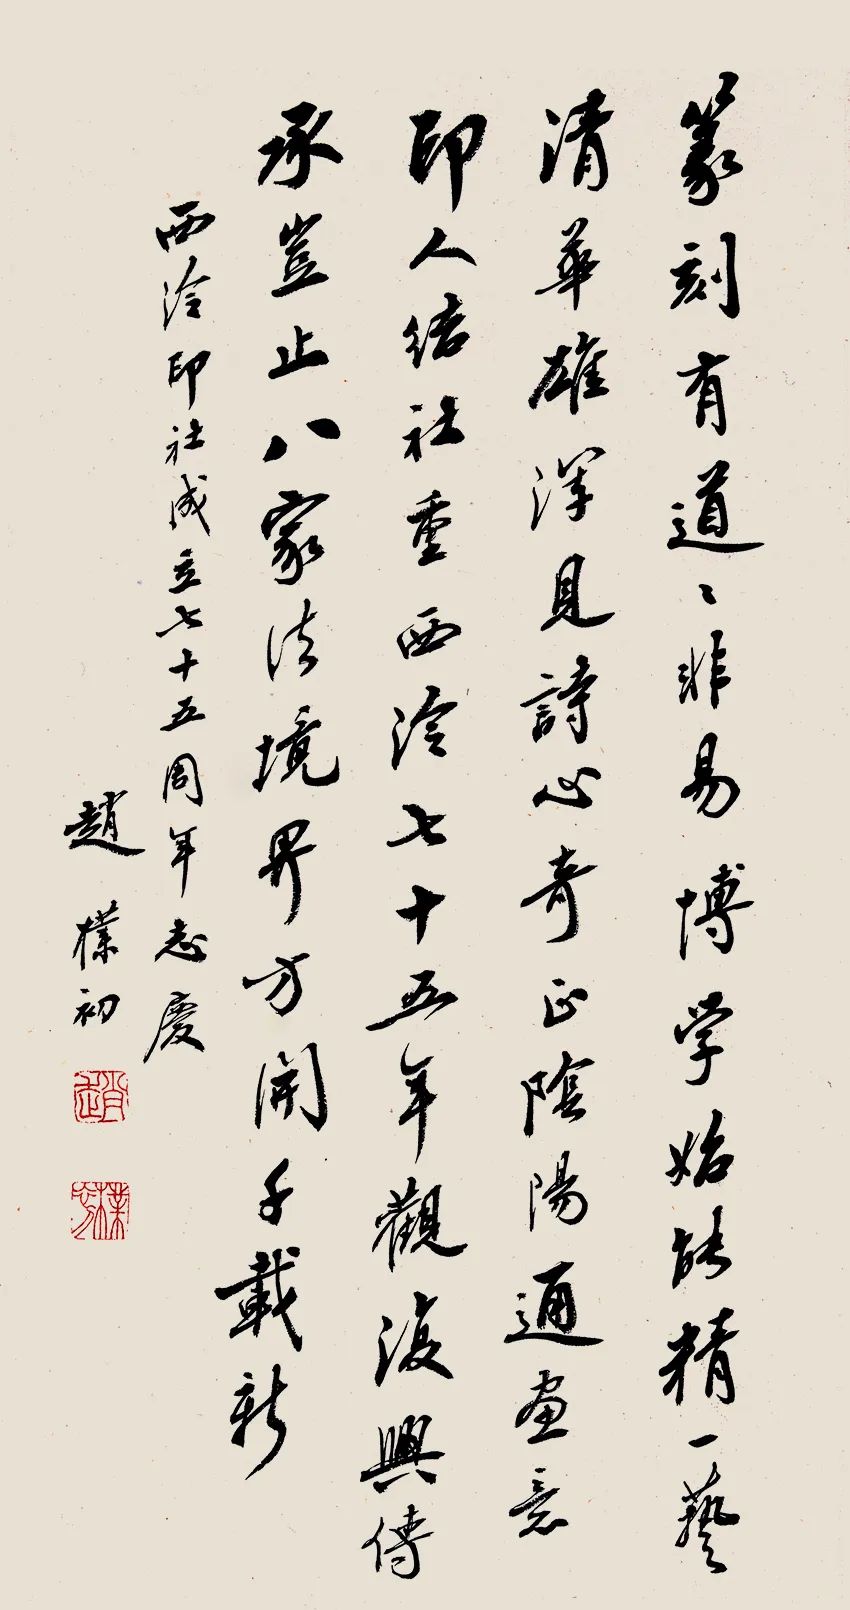 篆刻有道〻非易博学始能精一藝
清華雄渾見詩心奇正陰陽通畫意
印人结社重西泠七十五年觀復興傳
承豈止八家法境界方開千載新
西泠印社成立七十五周年志慶
趙樸初
趙
樸初